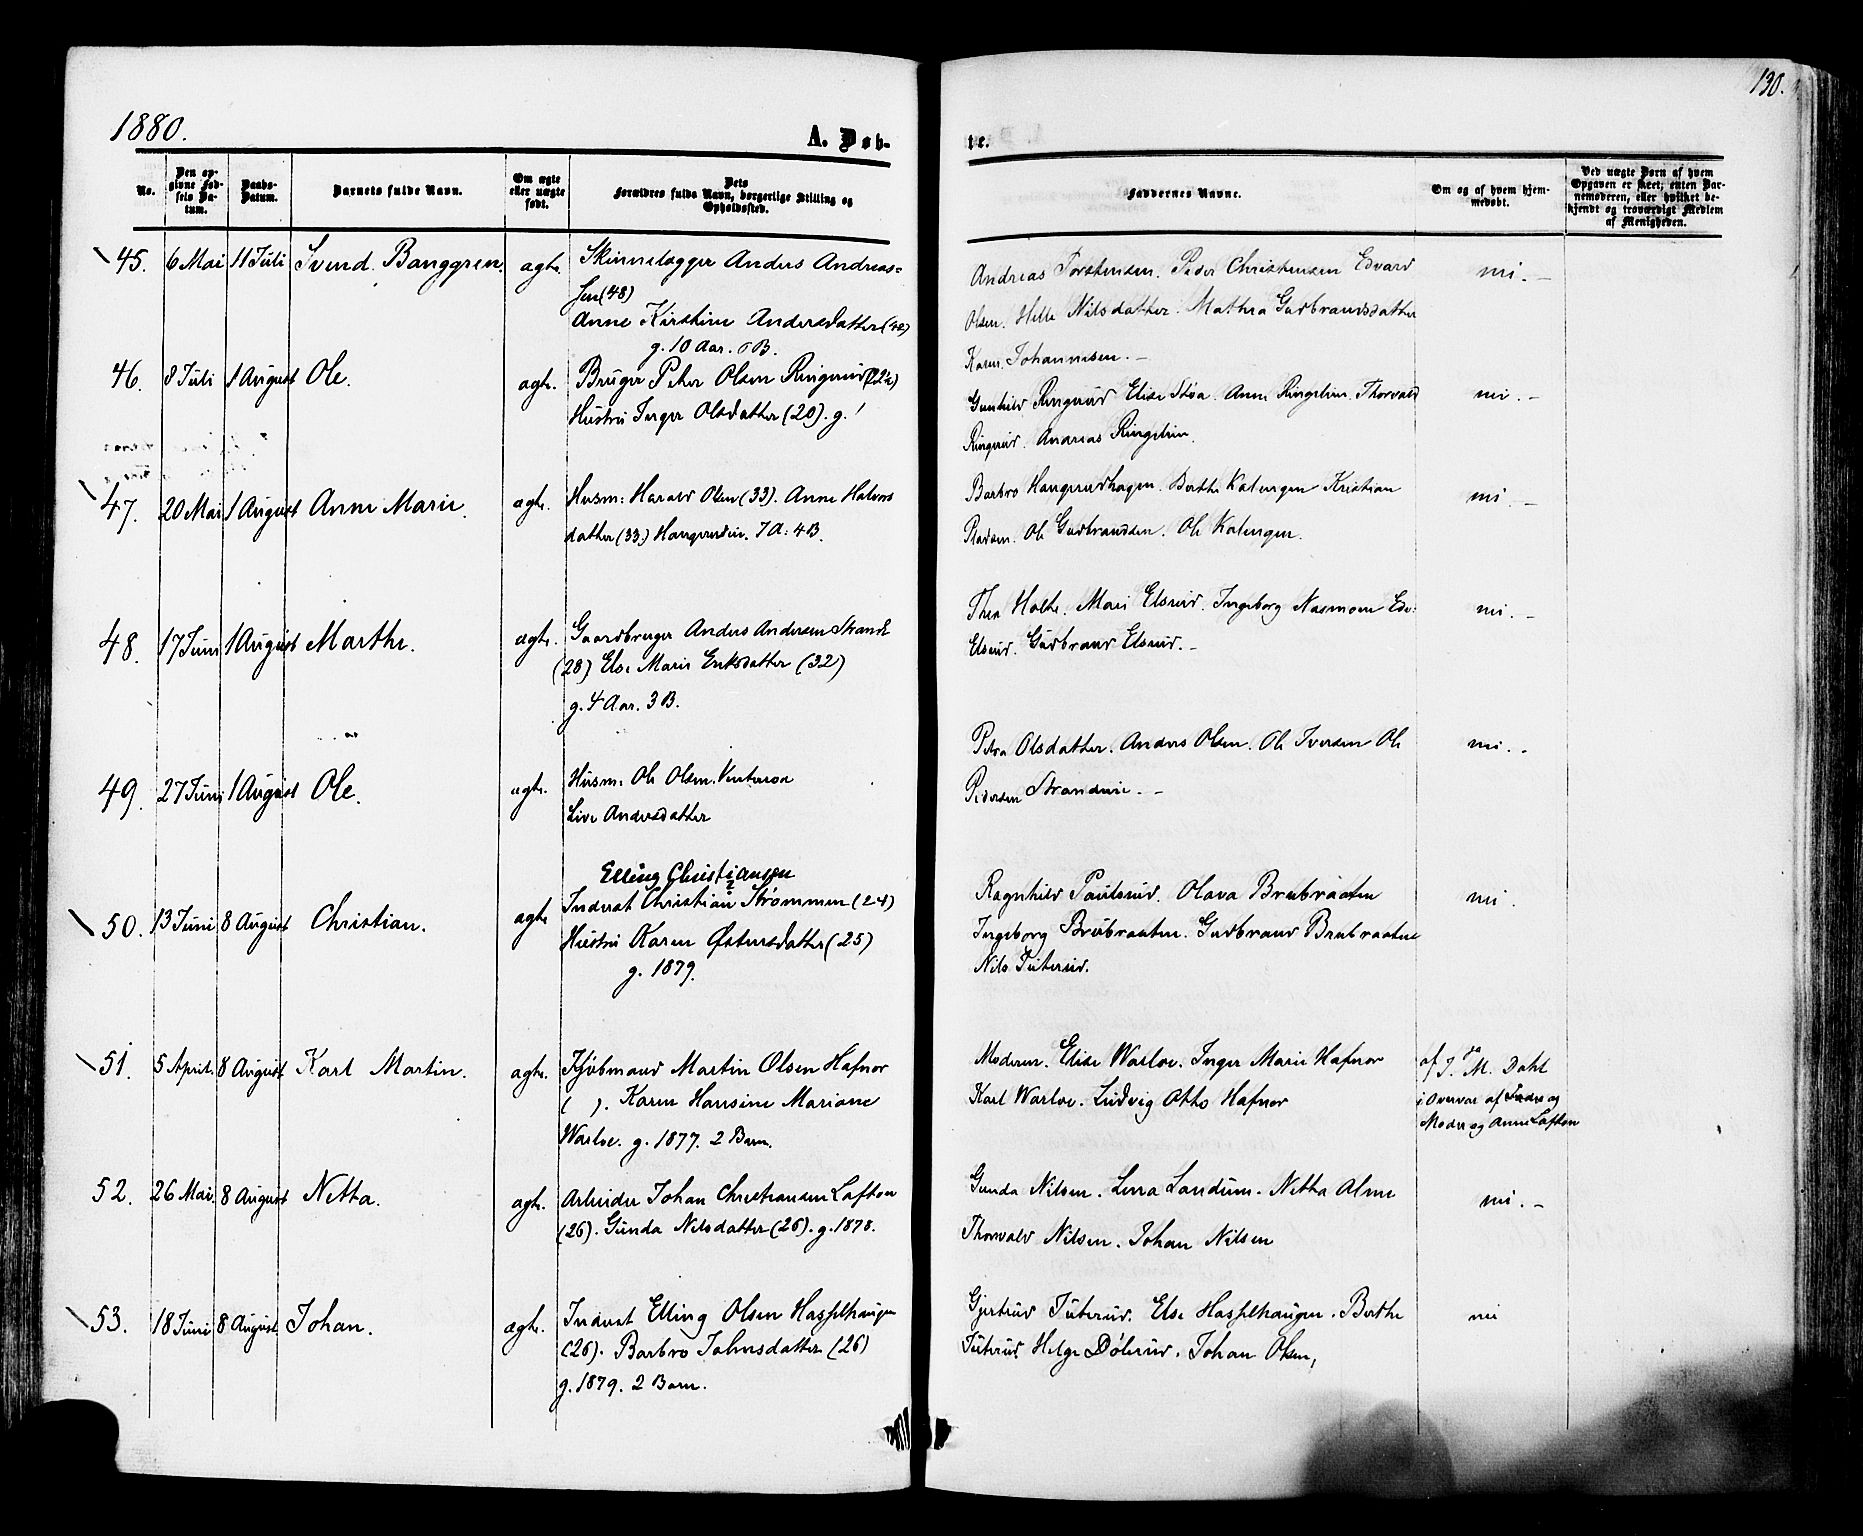 130.
1880.
A. Døb-
te.
No.
Den op-
givne Fød-
sels Da-
tum.
Daabs-
Datum.
Barnets fulde Navn.
Om ægte
eller uægte
født.
Dets
Forældres fulde Navn, borgerlige Stilling og
Opholdssted.
Faddernes Navne.
Om og af hvem hjem-
medøbt.
Ved uægte Børn af hvem
Opgaven er skeet; enten Bar-
nemoderen, eller hvilket be-
kjendt og troværdigt Medlem
af Menigheden.
45. 6 Mai 11 Juli Svend Banggren. ægte. Skinnelægger Anders Andreas-
sen (48)
Anne Kirstine Andersdatter (42)
g. 10 Aar. 6 B.
Andreas Torstensen. Peder Christensen Edvard
Olsen. Helle Nilsdatter. Mathea Gudbrandsdatter
Karen Johannesen. -
ni. -
46. 8 Juli 1 August Ole. ægte. Bruger Peter Olsen Ringerud (22½)
Hustru Inger Olsdatter (20). g. 1
Gunhild Ringerud Elise Stoa. Anne Ringelien. Thorvald
Ringerud. Andreas Ringelien.
ni. -
47. 20 Mai 1 August Anne Marie. ægte. Husm: Harald Olsen (33). Anne Halvors
datter (33.) Haugerudeie. 7 A. 4 B.
Barbro Haugerudhagen. Berthe Kalengen Kristian
Pladsen. Ole Gudbrandsen. Ole Kalengen.
ni. -
48. 17 Juni 1 August Marthe. ægte. Gaardbruger Anders Andersen Strande
(28) Else Marie Eriksdatter (32)
g. 4 Aar. 3 B.
Thea Holte. Mari Elsrud. Ingeborg Næsmoen Edv.
Elsrud. Gudbrand Elsrud. -
ni. -
49. 27 Juni 1 August Ole. ægte. Husm. Ole Olsen.
Live Andersdatter
Petra Olsdatter. Anders Olsen. Ole Iversen Ole
Pedersen Strandeie. -
ni. -
50. 13 Juni 8 August Christian. ægte Elling Christiansen
Inderst Christian Strømmen (24)
Hustru Karen Østensdatter (25)
g. 1879.
Ragnhild Paulsrud. Olava Brubraaten
Ingeborg Brubraaten. Gudbrand Brubraatene
Nils Tuterud.
ni.
51. 5 April. 8 August Karl Martin. ægte. Kjøbmand Martin Olsen Hafnor
( ). Karen Hansine Mariane
Warloe. g. 1877. 2 Barn.
Moderen. Elise Warloe. Inger Marie Hafnor
Karl Warloe. Ludvig Otto Hafnor
af J. M. Dahl
i Overvær af Fader og
Moder og Anne Lafton
52. 26 Mai. 8 August Netta. ægte. Arbeider Johan Christiansen Lafton
(26). Gunda Nilsdatter (26). g. 1878.
Gunda Nilsen. Lina Landum. Netta Alme
Thorvald Nilsen. Johan Nilsen
ni. -
53. 18 Juni 8 August Johan. ægte. Inderst Elling Olsen Hasselhaugen
(26). Barbro Johnsdatter (26)
g. 1879. 2 Barn.
Gjertrud Tuterud. Else Hasselhaugen. Berthe
Tuterud Helge Dølerud. Johan Olsen,
ni